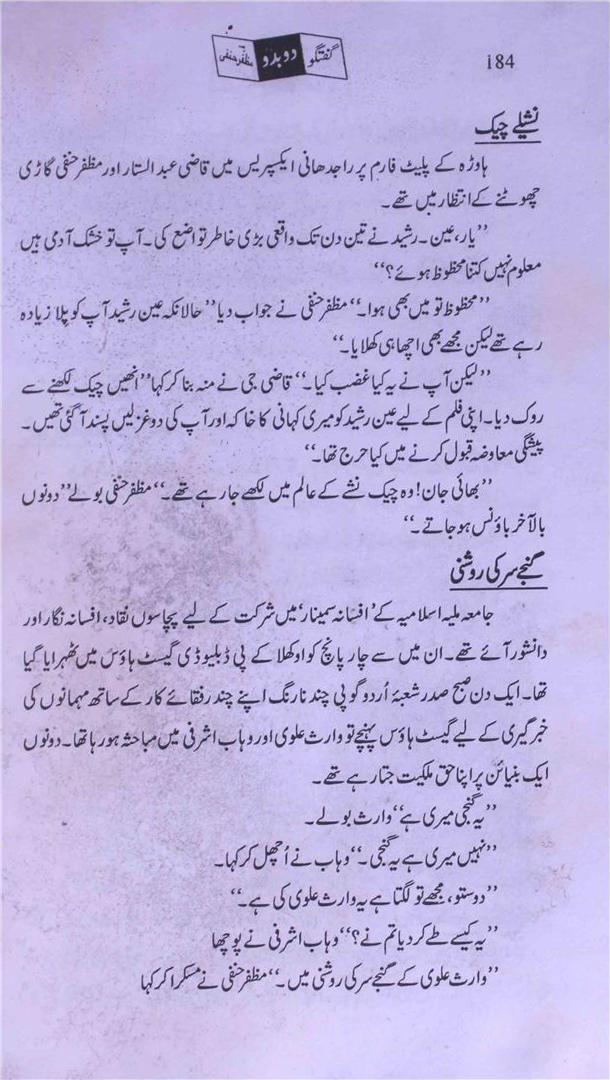 گفتگو دوبدو مظفر حنفی
184
نشیلے چیک
ہاوڑہ کے پلیٹ فارم پر راجدھانی ایکسپریس میں قاضی عبدالستار اور مظفر حنفی گاڑی
چھوٹنے کے انتظار میں تھے۔
’’یار، عین۔ رشید نے تین دن تک واقعی بڑی خاطر تواضع کی۔ آپ تو خشک آدمی ہیں
معلوم نہیں کتنا محظوظ ہوئے؟‘‘
’’محظوظ تو میں بھی ہوا۔‘‘ مظفر حنفی نے جواب دیا ’’حالانکہ عین رشید آپ کو پلا زیادہ
رہے تھے لیکن مجھے بھی اچھا ہی کھلایا۔‘‘
’’لیکن آپ نے یہ کیا غضب کیا۔‘‘ قاضی جی نے منہ بنا کر کہا ’’انھیں چیک لکھنے سے
روک دیا۔ اپنی فلم کے لیے عین رشید کو میری کہانی کا خاکہ اور آپ کی دو غزلیں پسند آگئی تھیں۔
پیشگی معاوضہ قبول کرنے میں کیا حرج تھا۔‘‘
’’بھائی جان! وہ چیک نشے کے عالم میں لکھے جا رہے تھے۔‘‘ مظفر حنفی بولے ’’دونوں
بالآخر باؤنس ہو جاتے۔‘‘
گنجے سر کی روشنی
جامعہ ملیہ اسلامیہ کے ’افسانہ سمینار‘ میں شرکت کے لیے پچاسوں نقاد، افسانہ نگار اور
دانشور آئے تھے۔ ان میں سے چار پانچ کو اوکھلا کے پی ڈبلیو ڈی گیسٹ ہاؤس میں ٹھہرایا گیا
تھا۔ ایک دن صبح صدر شعبۂ اُردو گوپی چند نارنگ اپنے چند رفقائے کار کے ساتھ مہمانوں کی
خبر گیری کے لیے گیسٹ ہاؤس پہنچے تو وارث علوی اور وہاب اشرفی میں مباحثہ ہو رہا تھا۔ دونوں
ایک بنیائن پر اپنا حق ملکیت جتا رہے تھے۔
’’یہ گنجی میری ہے‘‘ وارث بولے۔
’’نہیں میری ہے یہ گنجی۔‘‘ وہاب نے اُچھل کر کہا۔
’’دوستو، مجھے تو لگتا ہے یہ وارث علوی کی ہے۔‘‘
’’یہ کیسے طے کر دیا تم نے؟‘‘ وہاب اشرفی نے پوچھا
’’وارث علوی کے گنجے سر کی روشنی میں۔‘‘ مظفر حنفی نے مسکرا کر کہا